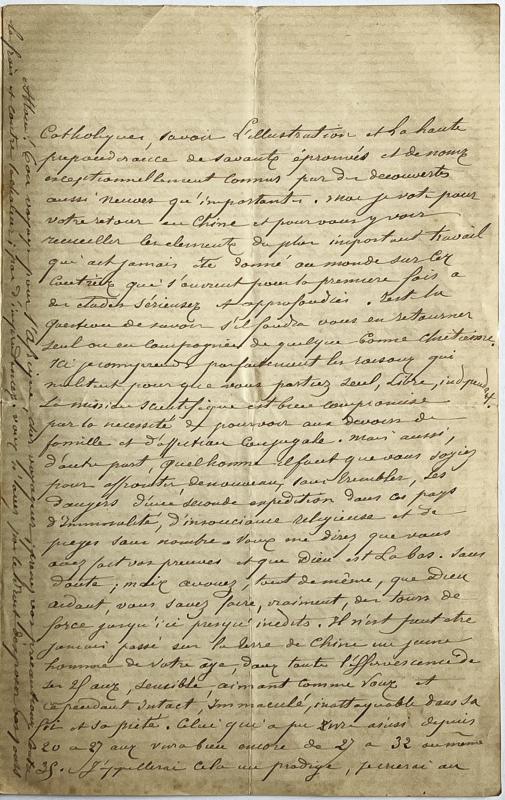 Catholiques, savoir L'illustration et la haute
prépondérance de savants éprouvés et de noms
exceptionnellement connus par des decouvertes
aussi neuves qu'importantes. Moi je vote pour
votre retour en Chine et pour vous y voir
recueiller les elements du plus important travail
qui ait jamais été donné au monde sur ces
Contrées que s'ouvrent pour la premiere fois a
des etudes serieuses et approfondies. Reste la
question de savoir s'il faudra vous en retourner
seul ou en compagnie de quelque bonne Chretienne.
Ici je comprends parfaitement les raisons qui
militent pour que vous partiez seul, libre, independant.
La mission scientifique est bien compromise
par la necessité de pourvoir aux devoirs de
famille et d'affection conjugale. Mais aussi,
d'autre part, quel homme il faut que vous soyiez
pour affronter, de nouveau, sans trembler, les
dangers d'une seconde expedition dans ces pays
d'Immoralité, d'insouciance religieuse et de
pieges sans nombre. Vous me direz que vous
avez fait vos preuves et que Dieu est La bas. Sans
doute; mais avouez, tout de même, que Dieu
aidant, vous savez faire, vraiment, des tours de
force jusqu'ici presqu'inedits. Il n'est peut etre
jamais passé sur la terre de Chine un jeune
homme de votre age, dans toute l'effervescence de
ses 25 ans, sensible, aimant comme vous et
cependant intact, Immaculé, inattaquable dans sa
foi et sa pieté. Celui qui a pu vivre ainsi depuis
20 a 27 ans vivra bien encore de 27 a 32 ou même
35. J'appellerai cela un prodige, je crierai au
l'Afrique, vos precautions
le froid et contre